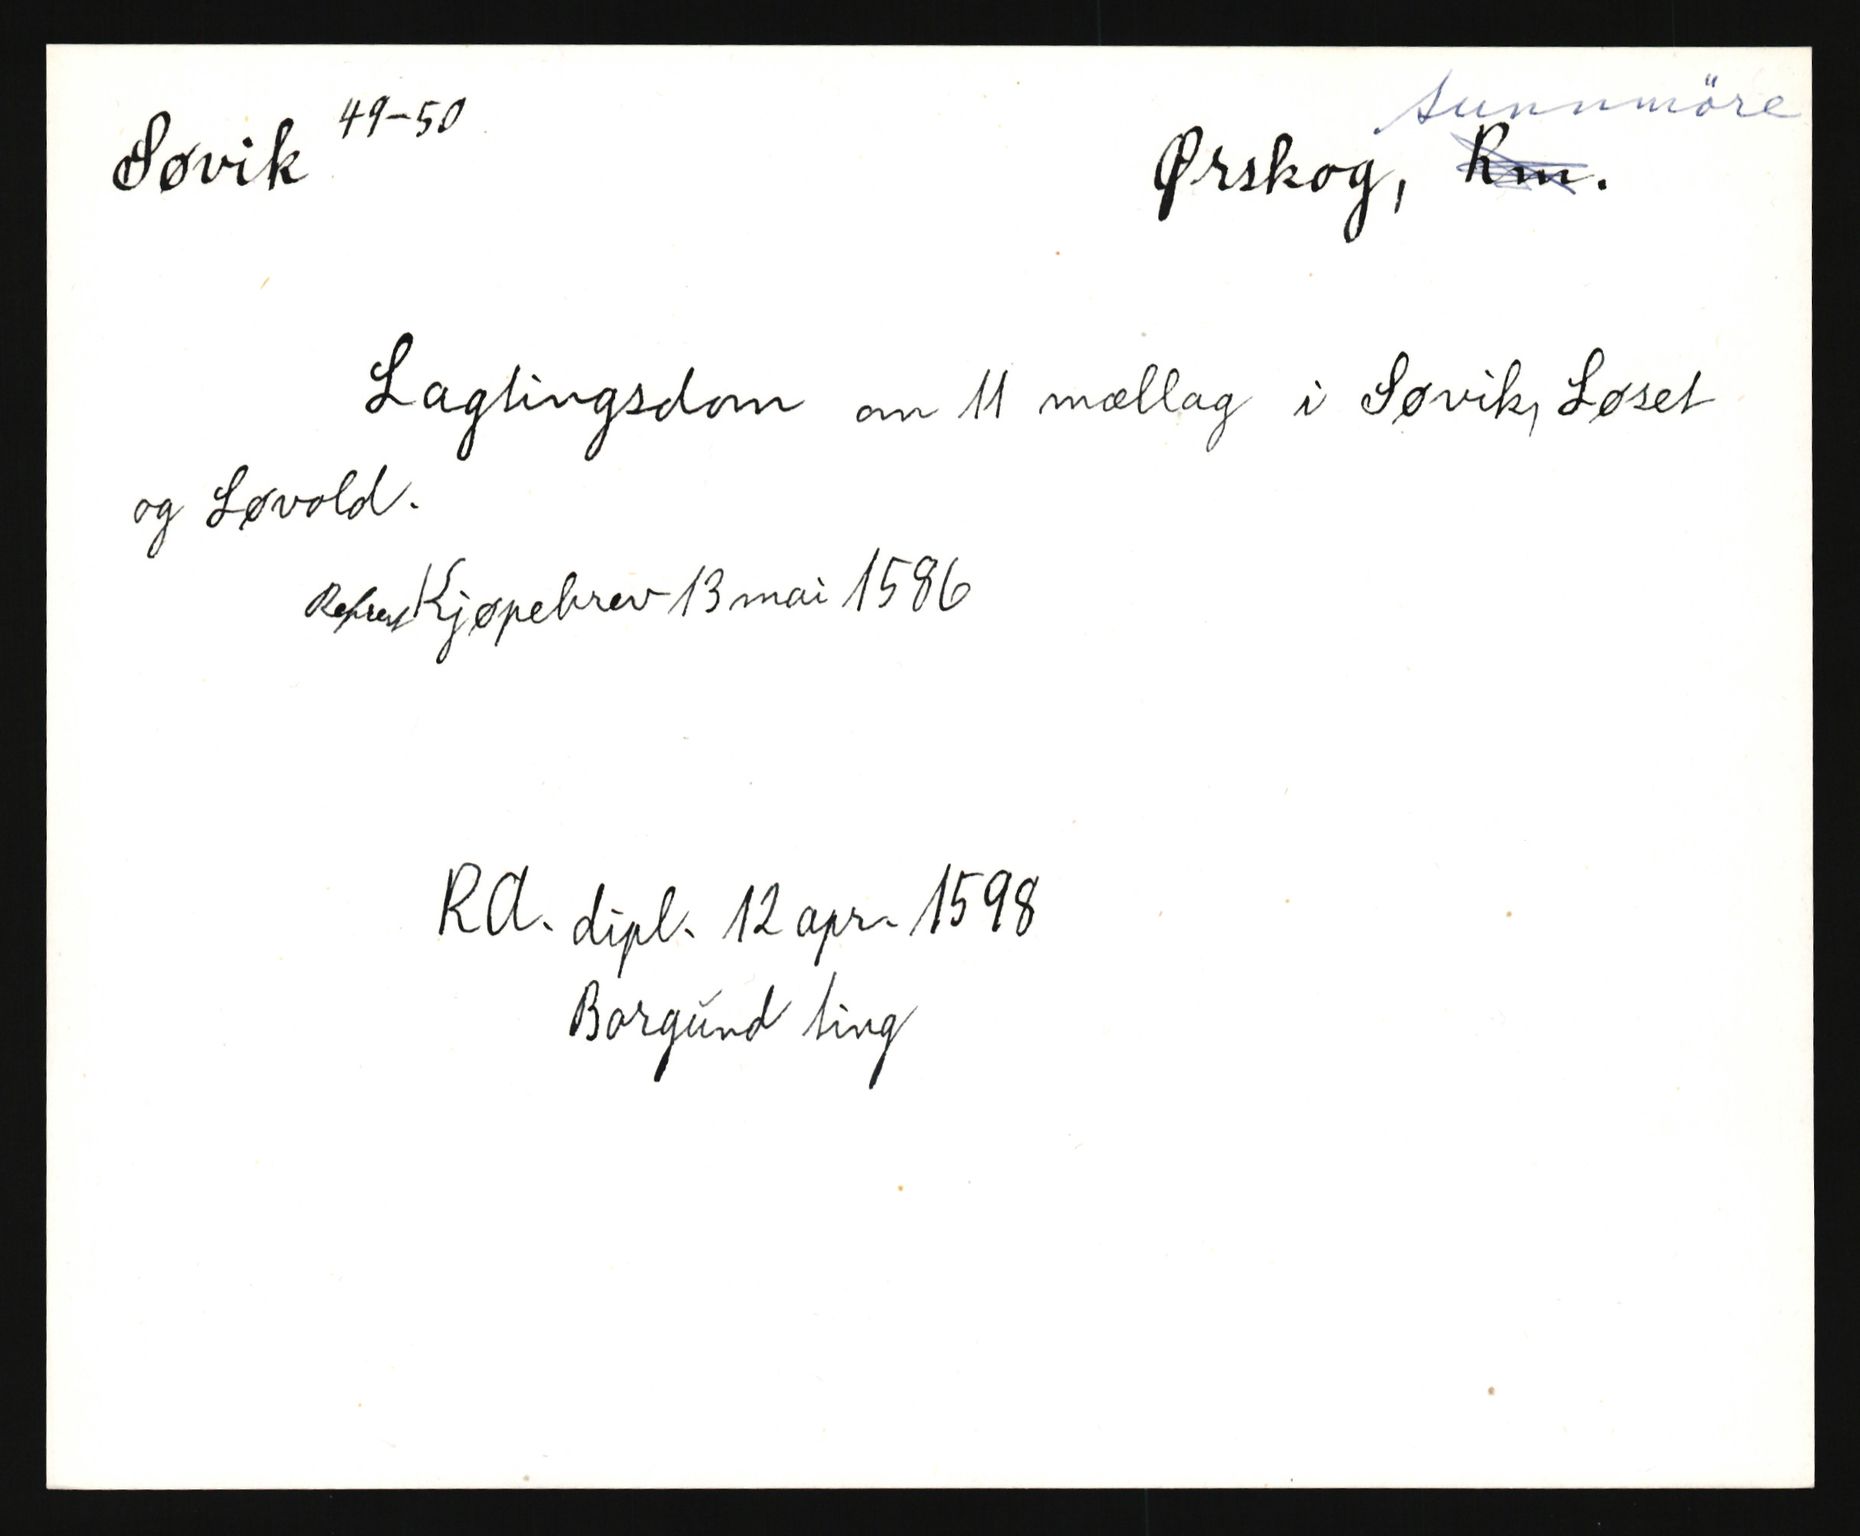 Søvik 49-50
sunnmöre
Ørskog, Rm.
Lagtingsdom om 11 mællag i Søvik, Løset
og Løvold.
Kjøpebrev 13 mai 1586
RA. dipl. 12 apr. 1598
Borgund ting